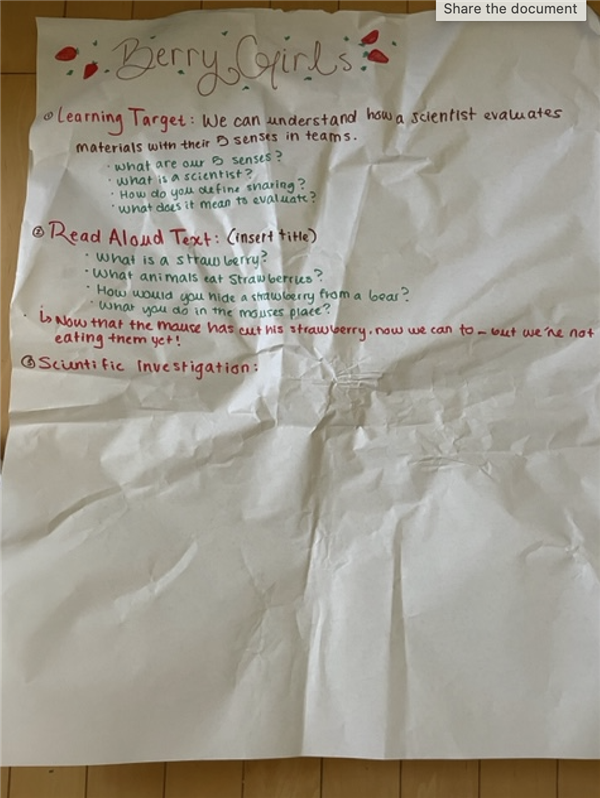 Share the document
Berry Girls
① Learning Target: We can understand how a scientist evaluates
materials with their 5 senses in teams.
· What are our 5 senses?
· What is a scientist?
· How do you define sharing?
· What does it mean to evaluate?
② Read Aloud Text: (insert title)
· What is a strawberry?
· What animals eat strawberries?
· How would you hide a strawberry from a bear?
· What you do in the mouses place?
↳ Now that the mouse has cut his strawberry, now we can to - but we're not
eating them yet!
③ Scientific Investigation: